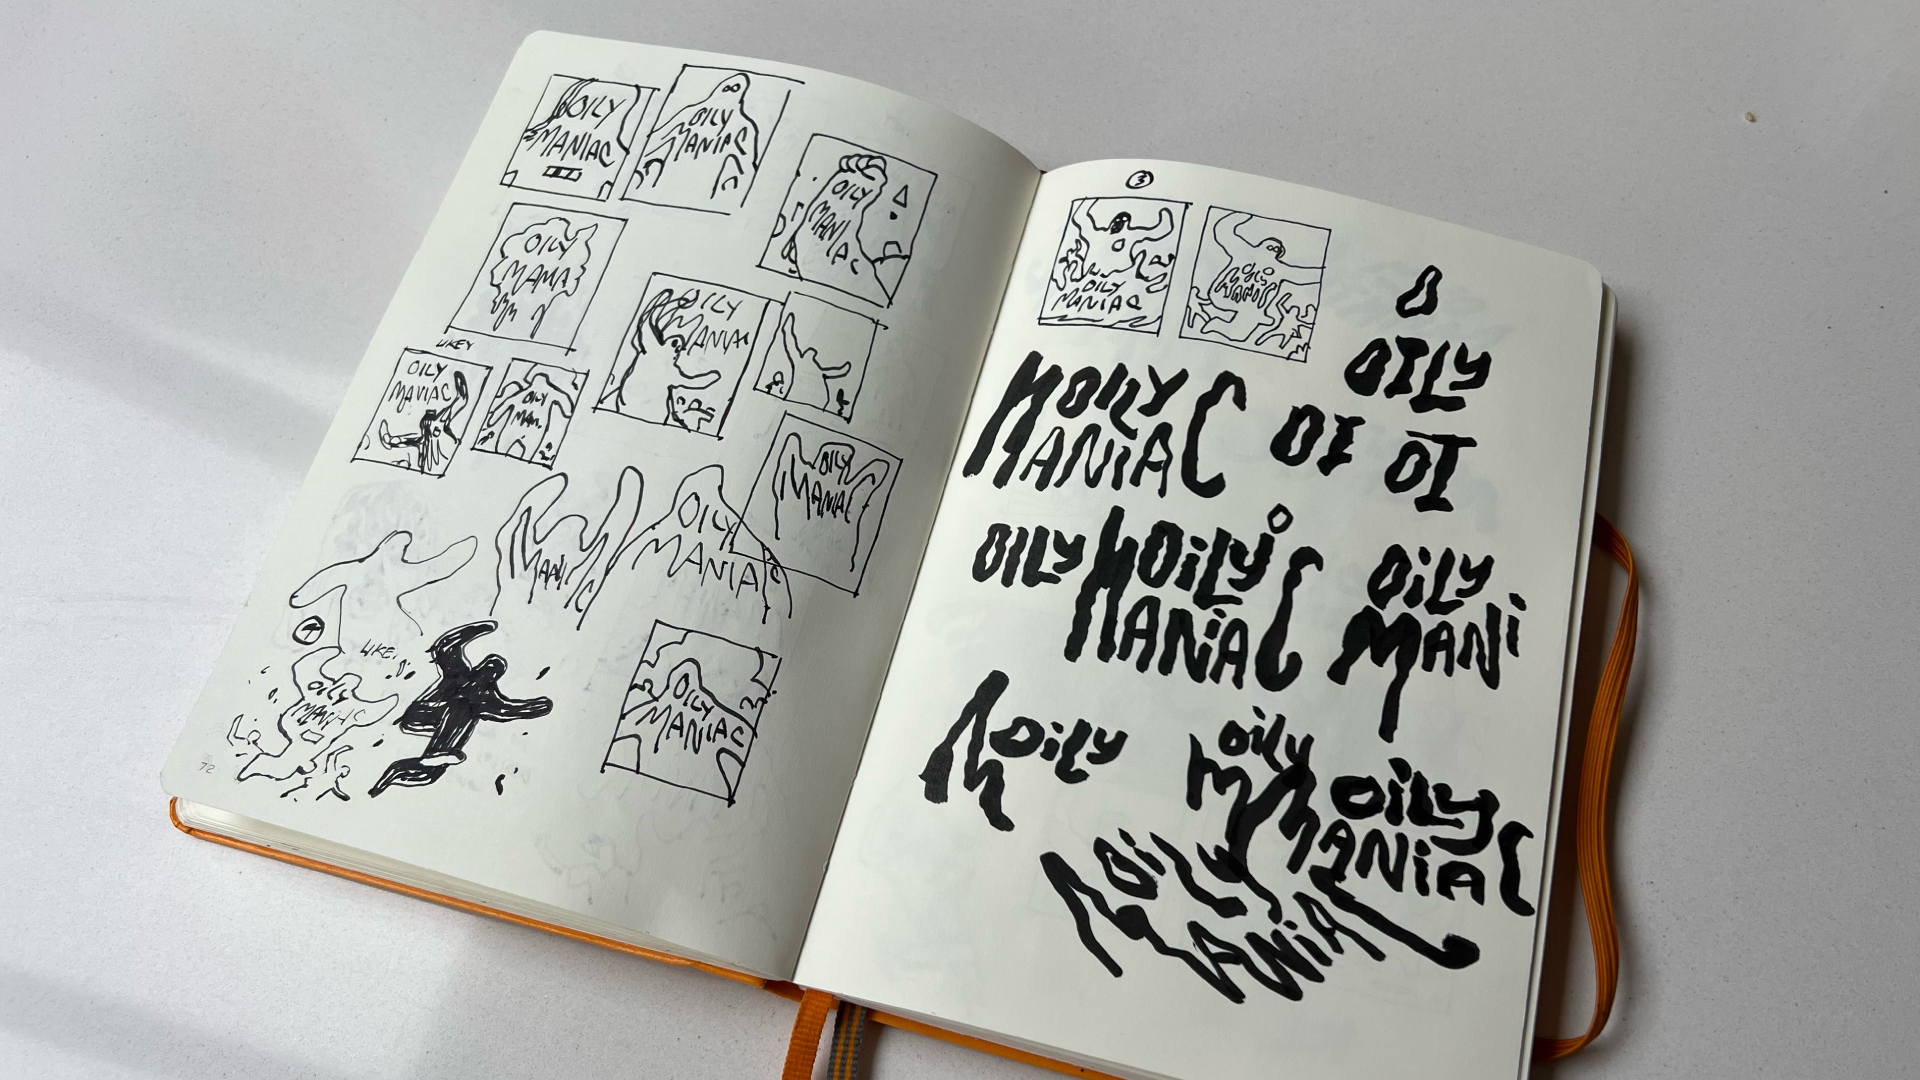 OILY
MANIAC
OILY
MANIAC
OILY
MANI
AC
OILY
MAMA
OILY
MANIAC
LIKEY
OILY
MANIAC
OILY
MAN.
OILY
MANIAC
MANIC
OILY
MANIAC
LIKE.
OILY
MANIAC
OILY
MANIAC
72
3
OILY
MANIAC
OILY
MANIC
O
OILY
OILY
MANIAC
OI
OI
OILY
OiLY
MANiAC
OiLY
MANi
M
OiLy
oily
M
OiLY
MANiAC
OiLY
MANiAC